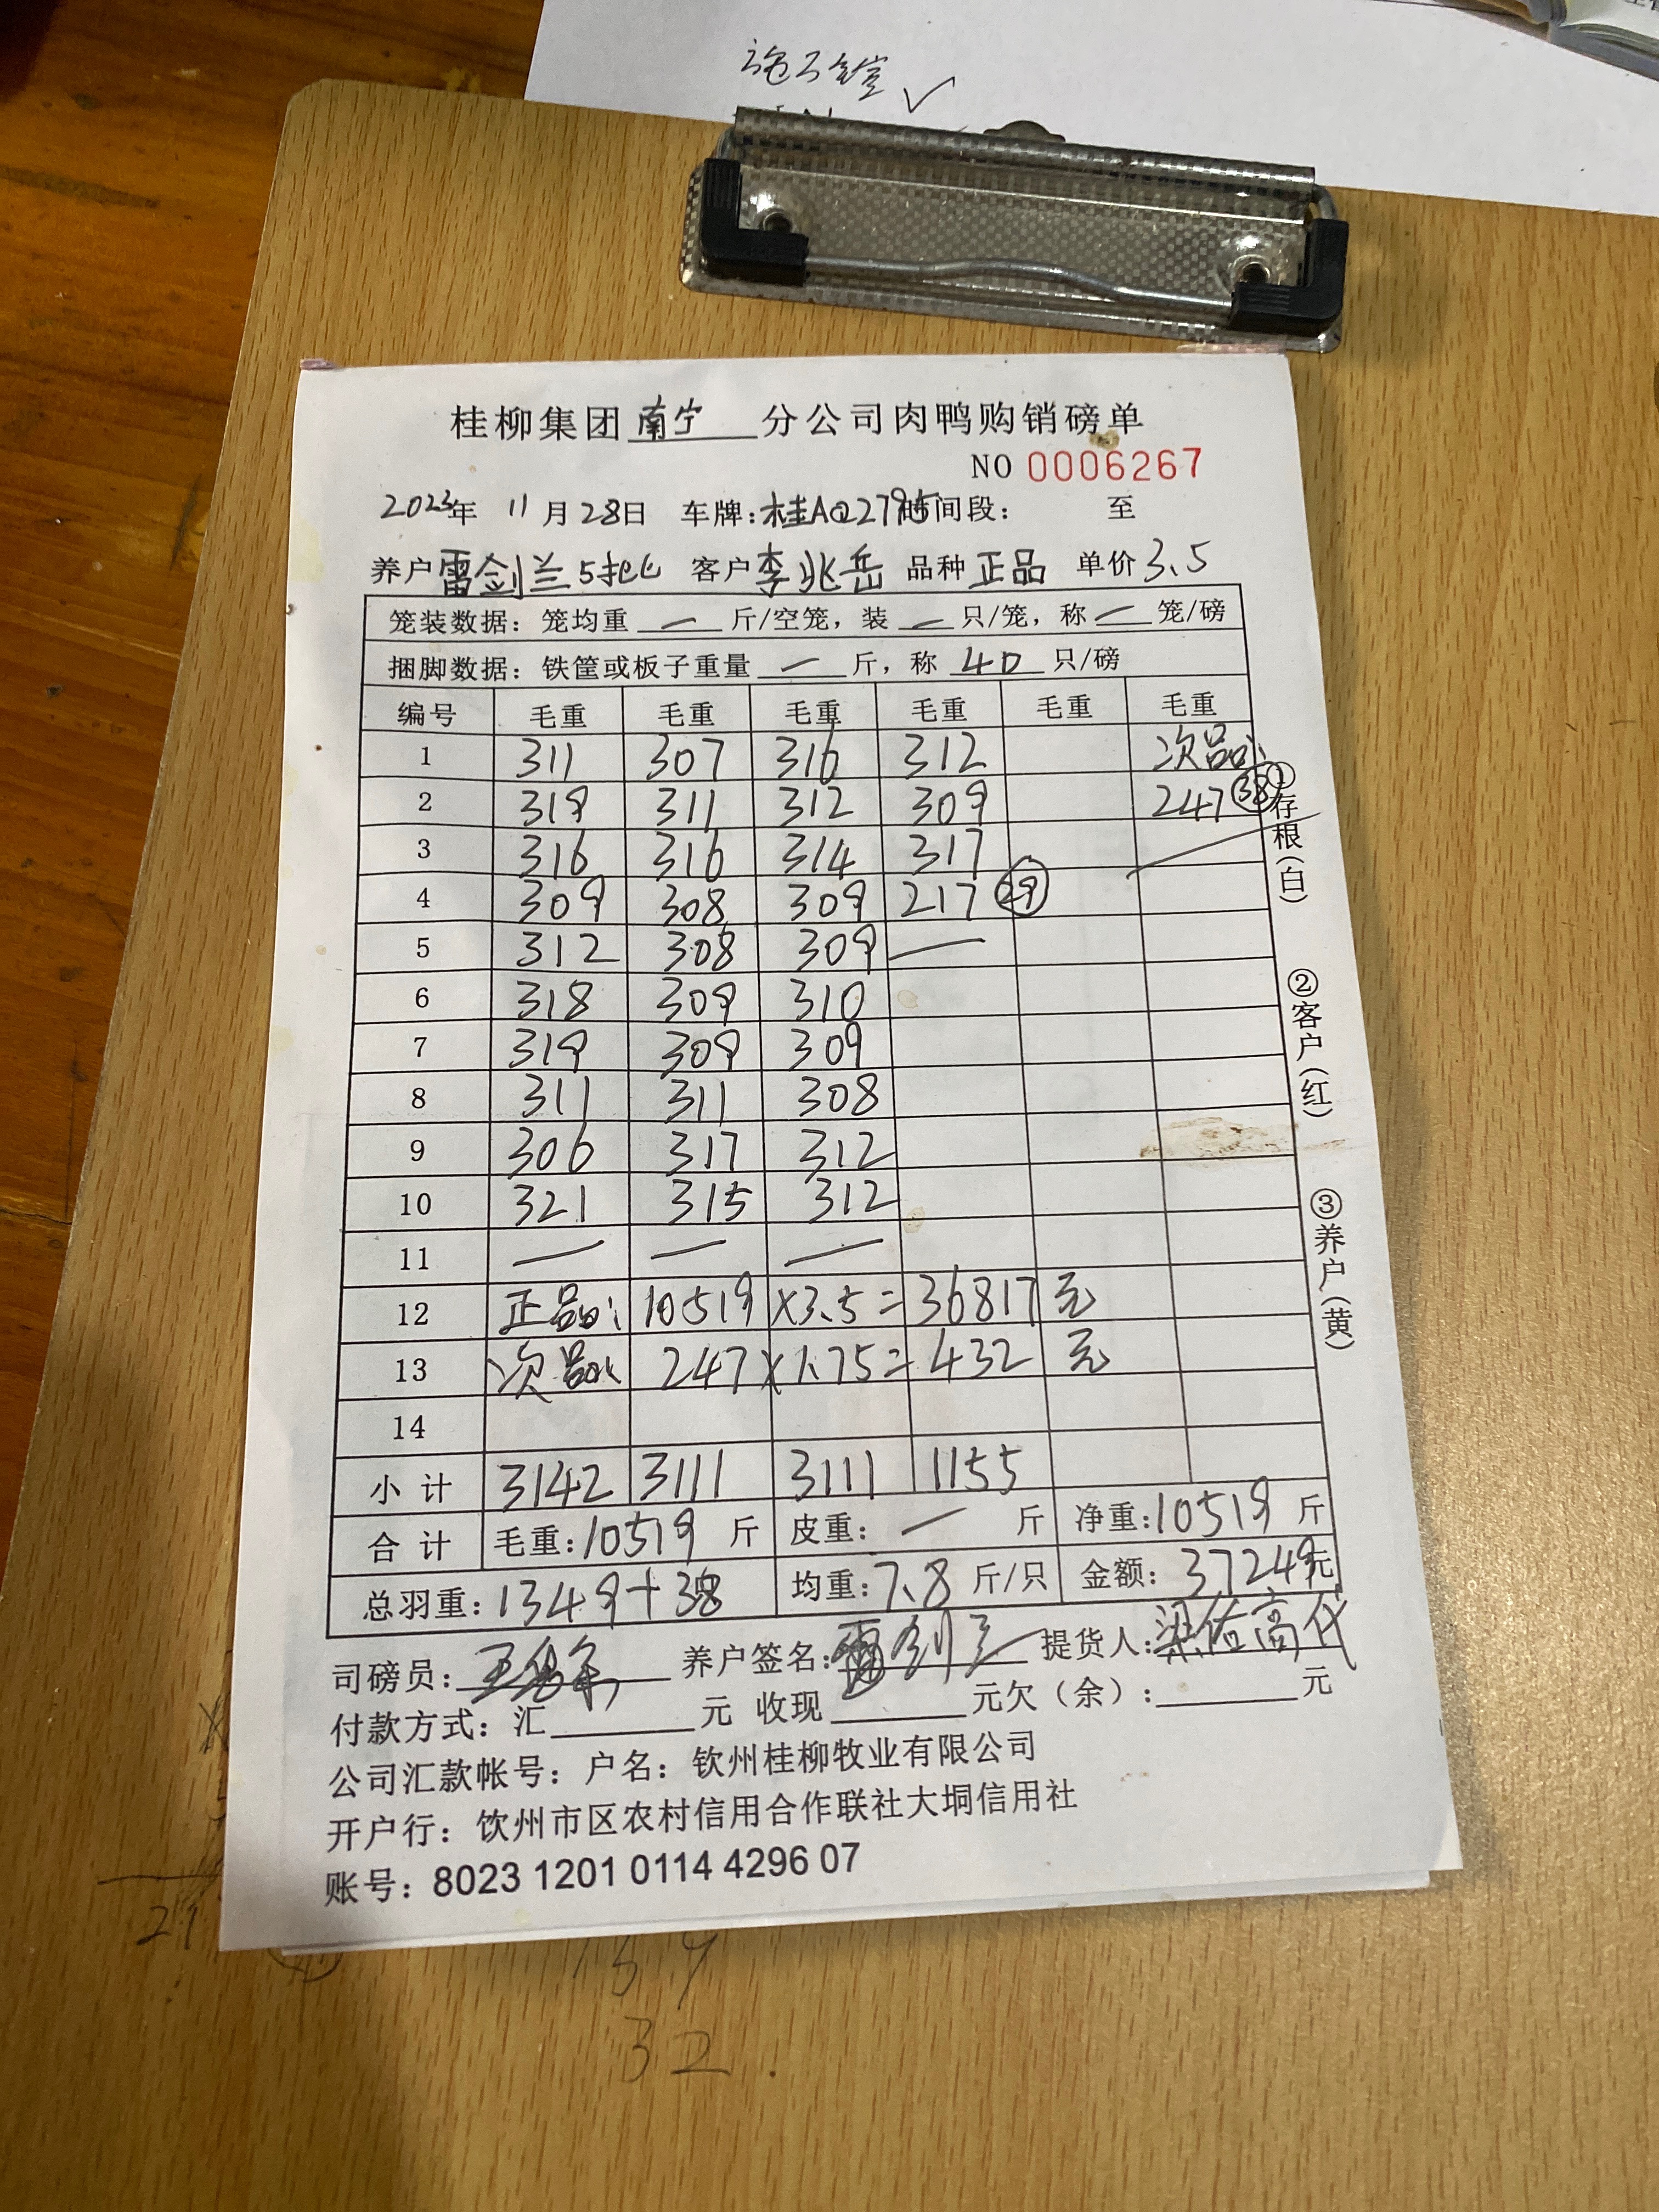 桂柳集团南宁分公司肉鸭购销磅单
NO 0006267
2023年 11月28日 车牌:桂A02795时间段: 至
养户雷剑兰5批 客户李兆岳 品种正品 单价3.5
笼装数据: 笼均重 — 斤/空笼, 装 — 只/笼, 称 — 笼/磅
捆脚数据: 铁筐或板子重量 — 斤, 称 40 只/磅
编号 毛重 毛重 毛重 毛重 毛重 毛重
1 311 307 316 312 次品:
2 319 311 312 309 247 38
3 316 316 314 317
4 309 308 309 217 29
5 312 308 309 —
6 318 309 310
7 319 309 309
8 311 311 308
9 306 317 312
10 321 315 312
11 — — —
12 正品: 10519 ×3.5= 36817 元
13 次品: 247×1.75= 432 元
14
小计 3142 3111 3111 1155
合计 毛重:10519 斤 皮重: — 斤 净重:10519 斤
总羽重:1349+38 均重:7.8 斤/只 金额: 37249元
司磅员: 养户签名:雷剑兰 提货人:梁佑高代
付款方式: 汇 元 收现 元欠(余): 元
公司汇款帐号: 户名: 钦州桂柳牧业有限公司
开户行: 钦州市区农村信用合作联社大垌信用社
账号: 8023 1201 0114 4296 07
①存根(白)
②客户(红)
③养户(黄)
21
159
32.